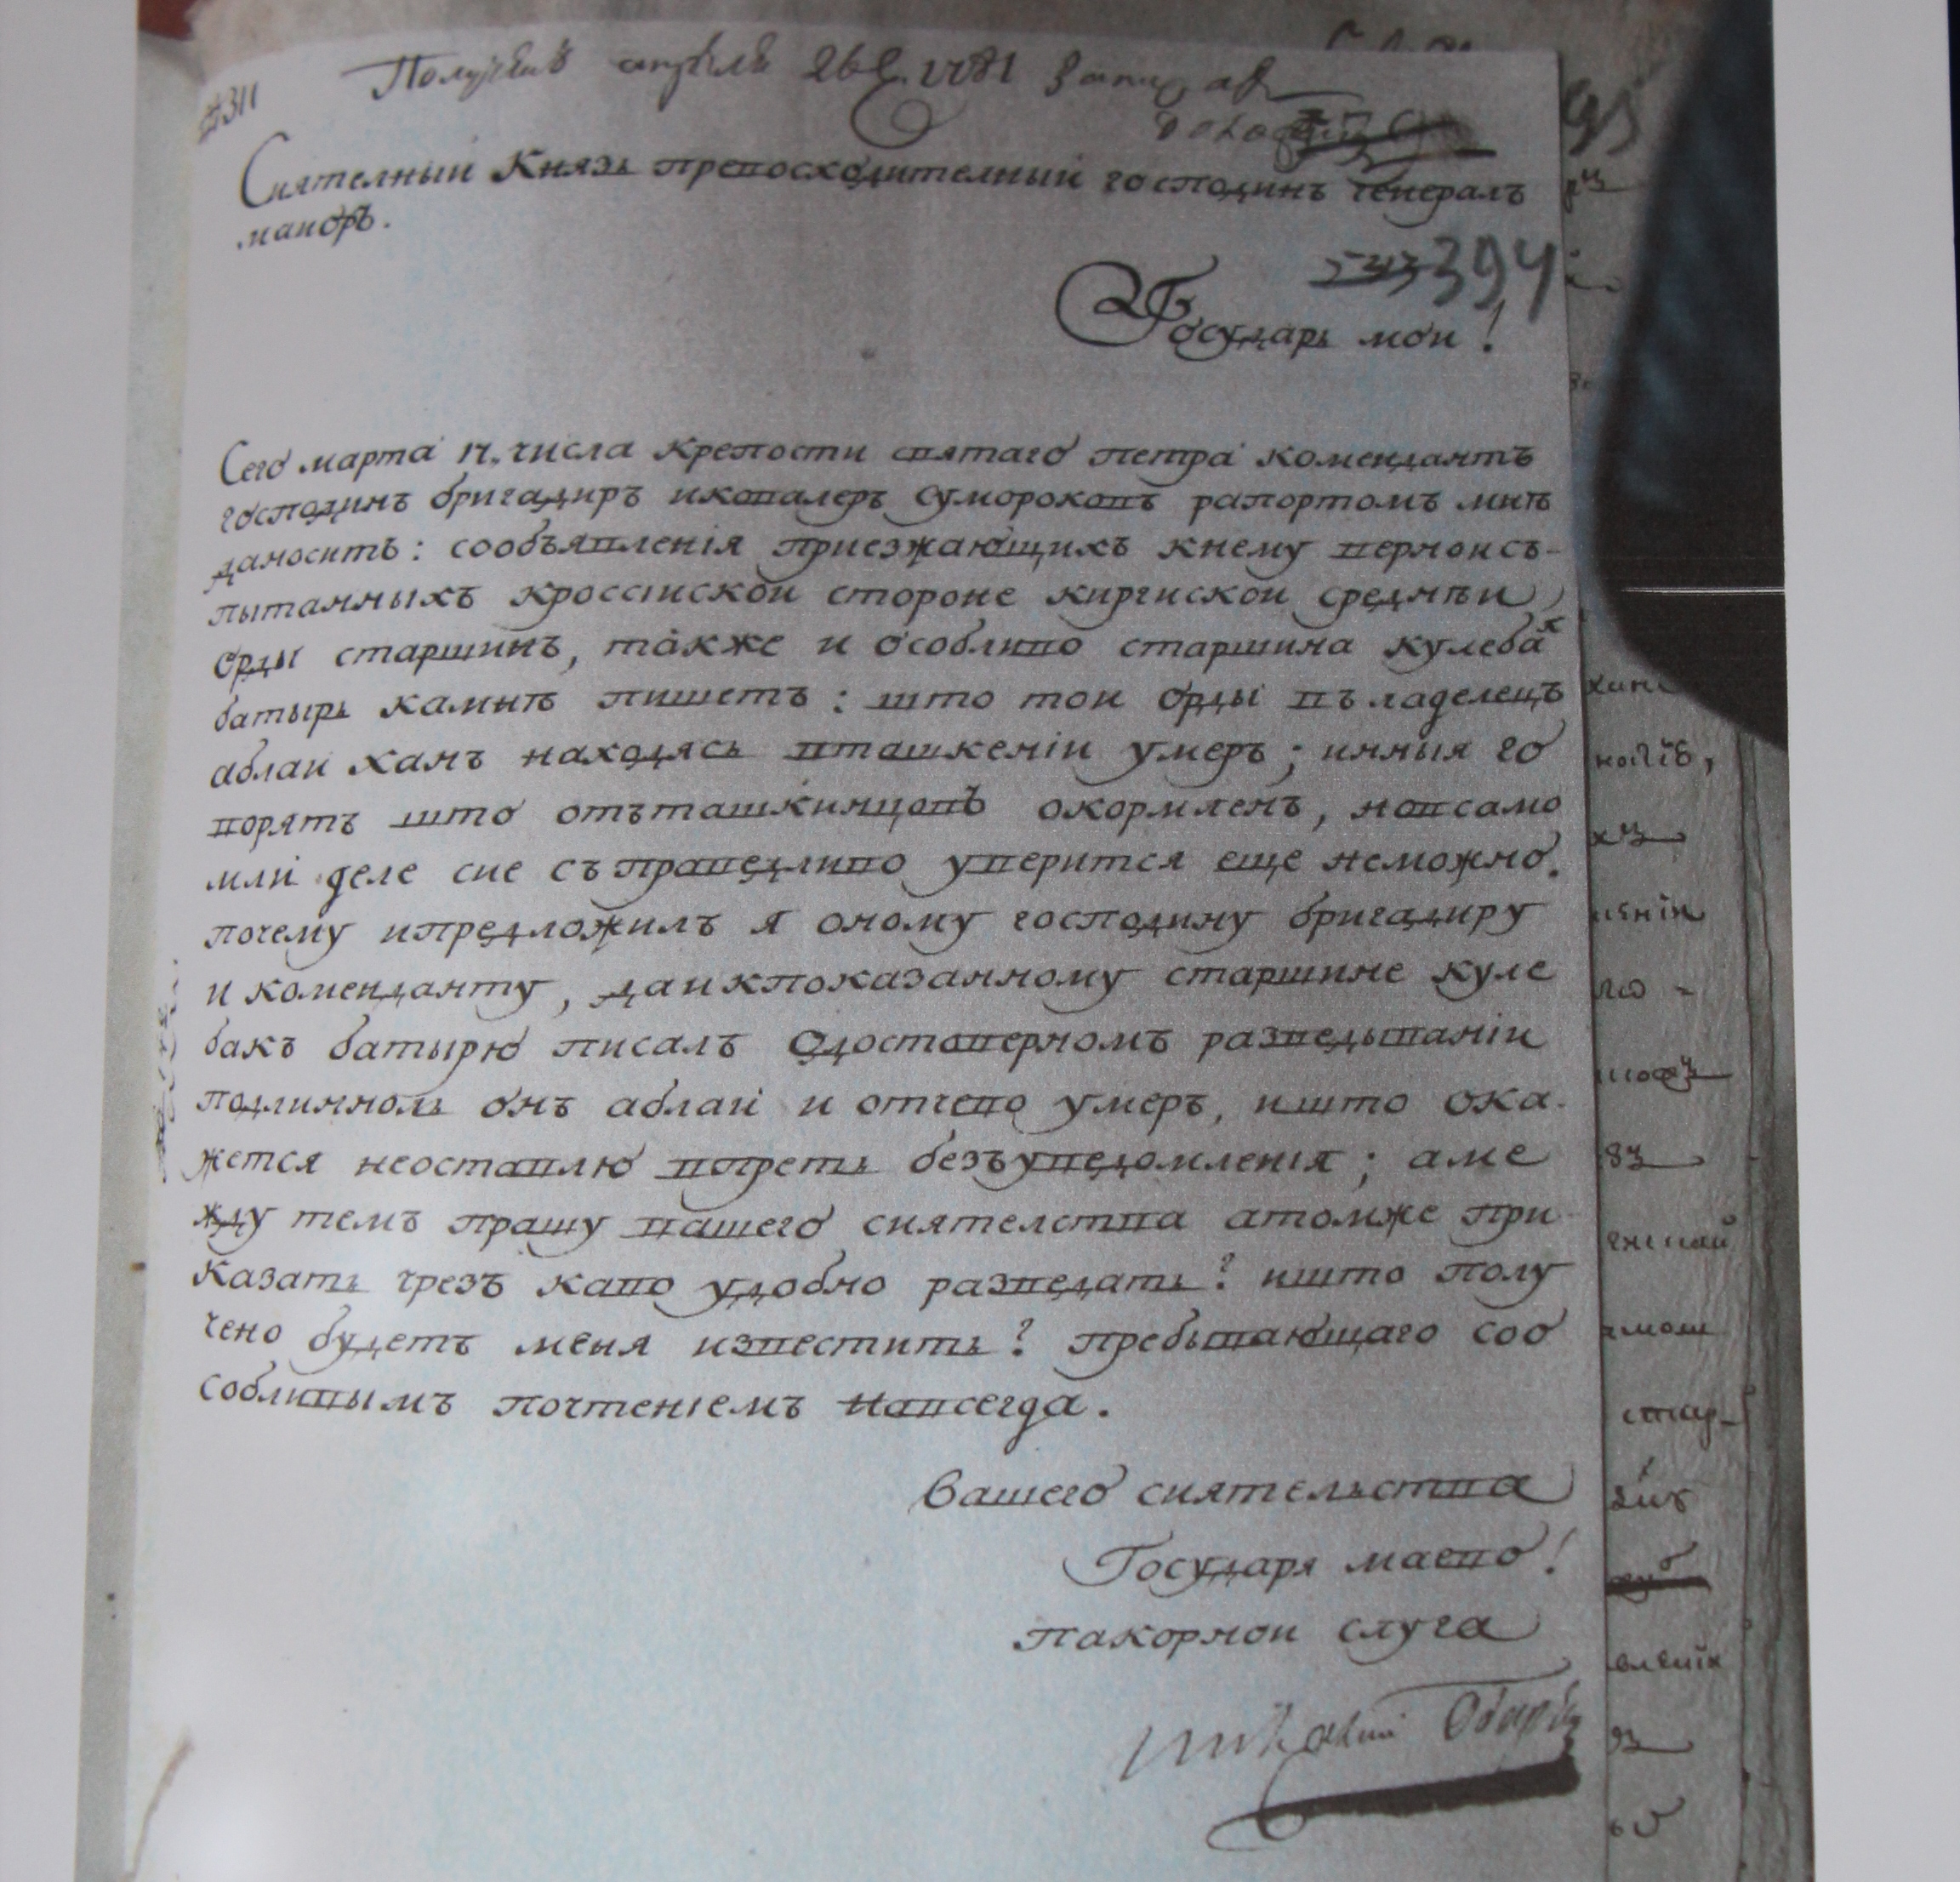 311
Получена апреля 26 д. 1781
Сиятелныи Князь превосходителныи господинъ генералъ
маиоръ.
394
Государь мои!
Сего марта 17, числа крепости святаго петра комендантъ
господинъ бригадиръ икавалеръ сумороковъ рапортомъ мнѣ
даноситъ: сообъявленія приезжающихъ кнему верноис-
пытанныхъ кроссіискои стороне киргискои среднѣи
орды старшинъ, также и особливо старшина кулебакъ
батырь камнѣ пишетъ: што тои орды въладелецъ
аблаи ханъ находясь вташкеніи умеръ; инныя го
ворятъ што отъташкинцовъ окормленъ, новсамо
мли деле сие съправедливо уверится еще неможно.
почему ипредложилъ я оному господину бригадиру
и коменданту, даикпоказанному старшине куле
бакъ батырю писалъ одостоверномъ разведываніи
подлинноль онъ аблаи и отчево умеръ, ишто ока-
жется неоставлю впреть безъуведомленія; аме
жду темъ прашу вашего сиятелства атомже при
казать чрезъ каво удобно разведать? ишто полу
чено будетъ меня известить? пребывающаго соо
собливымъ почтеніемъ навсегда.
Вашего сиятельства
Государя маево!
пакорнои слуга